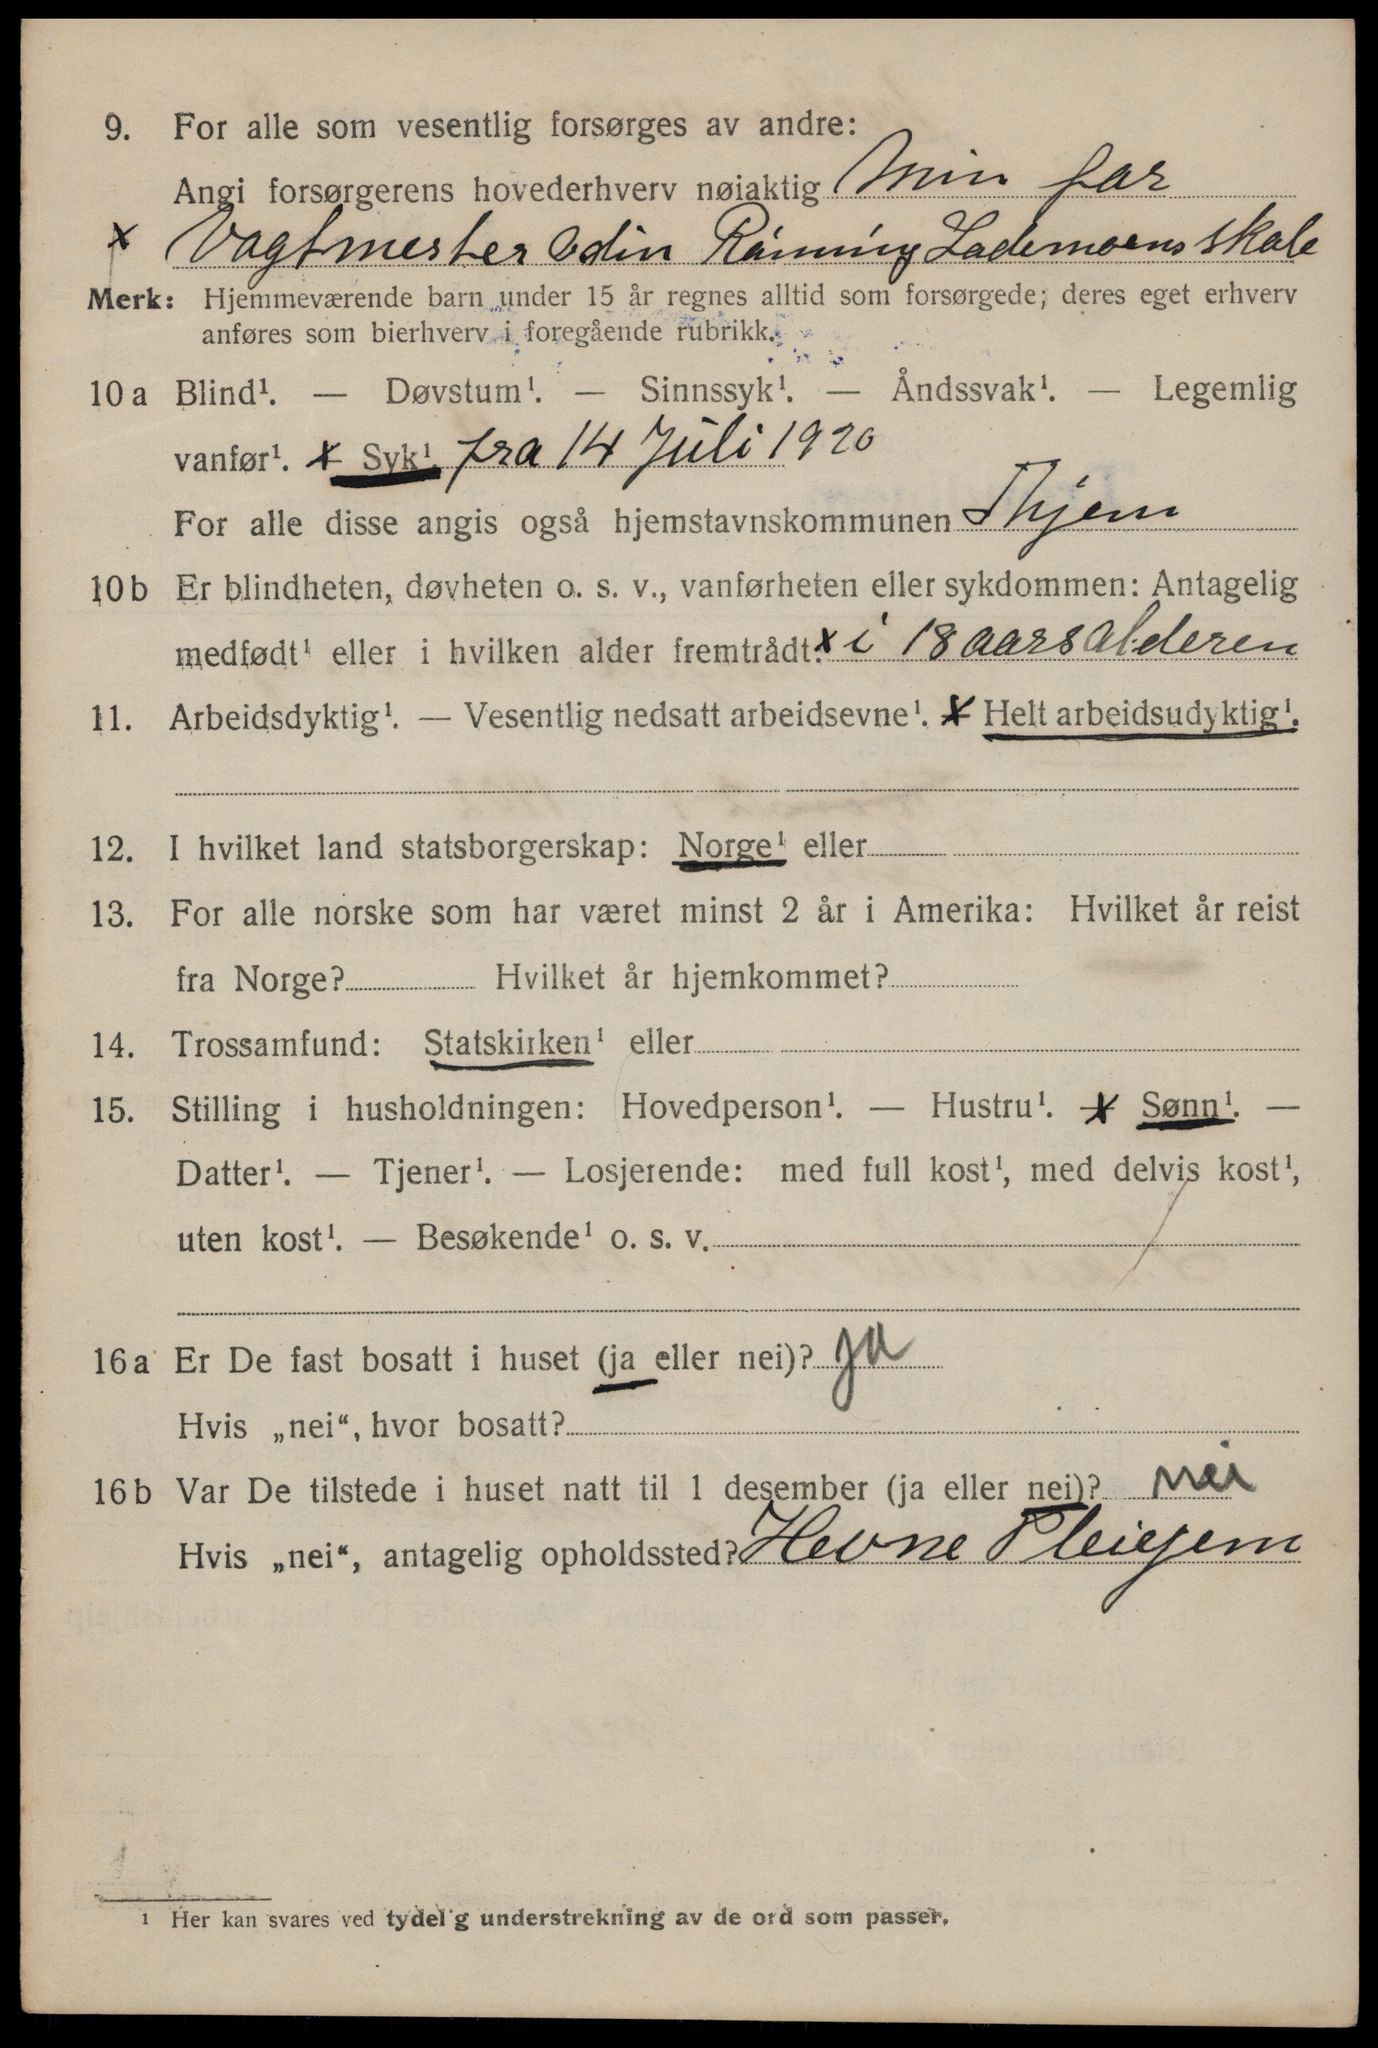 9. For alle som vesentlig forsørges av andre:
Angi forsørgerens hovederhverv nøiaktig Min far
x Vagtmester Odin Rønning Lademoens skole
Merk: Hjemmeværende barn under 15 år regnes alltid som forsørgede; deres eget erhverv
anføres som bierhverv i foregående rubrikk.
10 a Blind¹. — Døvstum¹. — Sinnssyk¹. — Åndssvak¹. — Legemlig
vanfør¹. x Syk¹ fra 14 Juli 1920
For alle disse angis også hjemstavnskommunen Thjem
10 b Er blindheten, døvheten o. s. v., vanførheten eller sykdommen: Antagelig
medfødt¹ eller i hvilken alder fremtrådt? x i 18 aarsalderen
11. Arbeidsdyktig¹. — Vesentlig nedsatt arbeidsevne¹. x Helt arbeidsudyktig¹.
12. I hvilket land statsborgerskap: Norge¹ eller
13. For alle norske som har været minst 2 år i Amerika: Hvilket år reist
fra Norge? Hvilket år hjemkommet?
14. Trossamfund: Statskirken¹ eller
15. Stilling i husholdningen: Hovedperson¹. — Hustru¹. x Sønn¹. —
Datter¹. — Tjener¹. — Losjerende: med full kost¹, med delvis kost¹,
uten kost¹. — Besøkende¹ o. s. v.
16 a Er De fast bosatt i huset (ja eller nei)? ja
Hvis „nei“, hvor bosatt?
16 b Var De tilstede i huset natt til 1 desember (ja eller nei)? nei
Hvis „nei“, antagelig opholdssted? Hevne Pleiejem
¹ Her kan svares ved tydelig understrekning av de ord som passer.